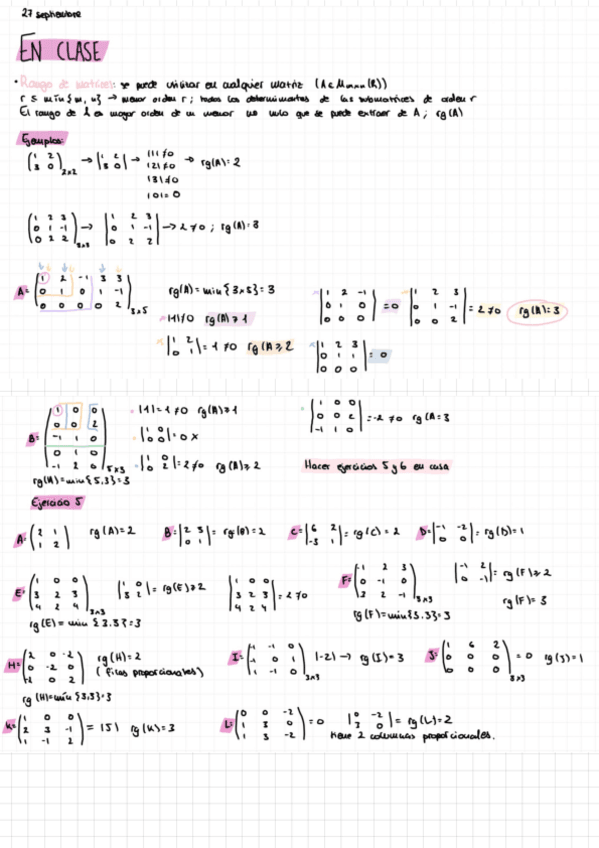 27 septiembre
EN CLASE
• Rango de matrices: se puede utilizar en cualquier matriz (A∈Mmxn(R))
r ≤ mín{m, n} → menor orden r; todos los determinantes de las submatrices de orden r
El rango de A es mayor orden de un menor no nulo que se puede extraer de A; rg(A)
Ejemplos:
(1 2 / 3 0)2x2 → |1 2 / 3 0| → |1|≠0 |2|≠0 |3|≠0 |0|=0 → rg(A)=2
(1 2 3 / 0 1 -1 / 0 2 2)3x3 → |1 2 3 / 0 1 -1 / 0 2 2| → 2≠0; rg(A)=3
A= (1 2 -1 3 3 / 0 1 0 1 -1 / 0 0 0 0 2)3x5
rg(A)=min{3x5}=3
|1|≠0 rg(A)≥1
|1 2 / 0 1|=1≠0 rg(A≥2
|1 2 -1 / 0 1 0 / 0 0 0|=0
|1 2 3 / 0 1 -1 / 0 0 2|=2≠0 rg(A)=3
|1 2 3 / 0 1 1 / 0 0 0|=0
B= (1 0 0 / 0 0 2 / -1 1 0 / 0 1 0 / -1 2 0)5x3
|1|=1≠0 rg(A)≥1
|1 0 / 0 0|=0 x
|1 0 / 0 2|=2≠0 rg(A)≥2
|1 0 0 / 0 0 2 / -1 1 0|=-2≠0 rg(A=3
rg(A)=min{5,3}=3
Hacer ejercicios 5 y 6 en casa
Ejercicio 5
A= (2 1 / 1 2) rg(A)=2
B= |2 3 / 0 1|= rg(B)=2
C= |6 2 / -3 1|= rg(C)=2
D= |-1 -2 / 0 0|= rg(D)=1
E= (1 0 0 / 3 2 3 / 4 2 4)3x3 |1 0 / 3 2|= rg(E)≥2 |1 0 0 / 3 2 3 / 4 2 4|=2≠0
rg(E)= min {3,3}=3
F= (-1 2 3 / 0 -1 0 / 3 2 -1)3x3 |-1 2 / 0 -1|= rg(F)≥2
rg(F)=min{3,3}=3
rg(F)=3
H= (2 0 -2 / 0 -2 0 / -2 0 2) rg(H)=2
(filas proporcionales)
rg(H)=mín{3,3}=3
I= (-1 -1 0 / -1 0 1 / 1 -1 0)3x3 |-2| → rg(I)=3
J= (1 6 2 / 0 0 0 / 0 0 0)3x3 =0 rg(J)=1
K= (1 0 0 / 2 3 -1 / 1 -1 2) = |5| rg(K)=3
L= (0 0 -2 / 1 3 0 / 1 3 -2)=0 |0 -2 / 3 0|= rg(L)=2
tiene 2 columnas proporcionales.